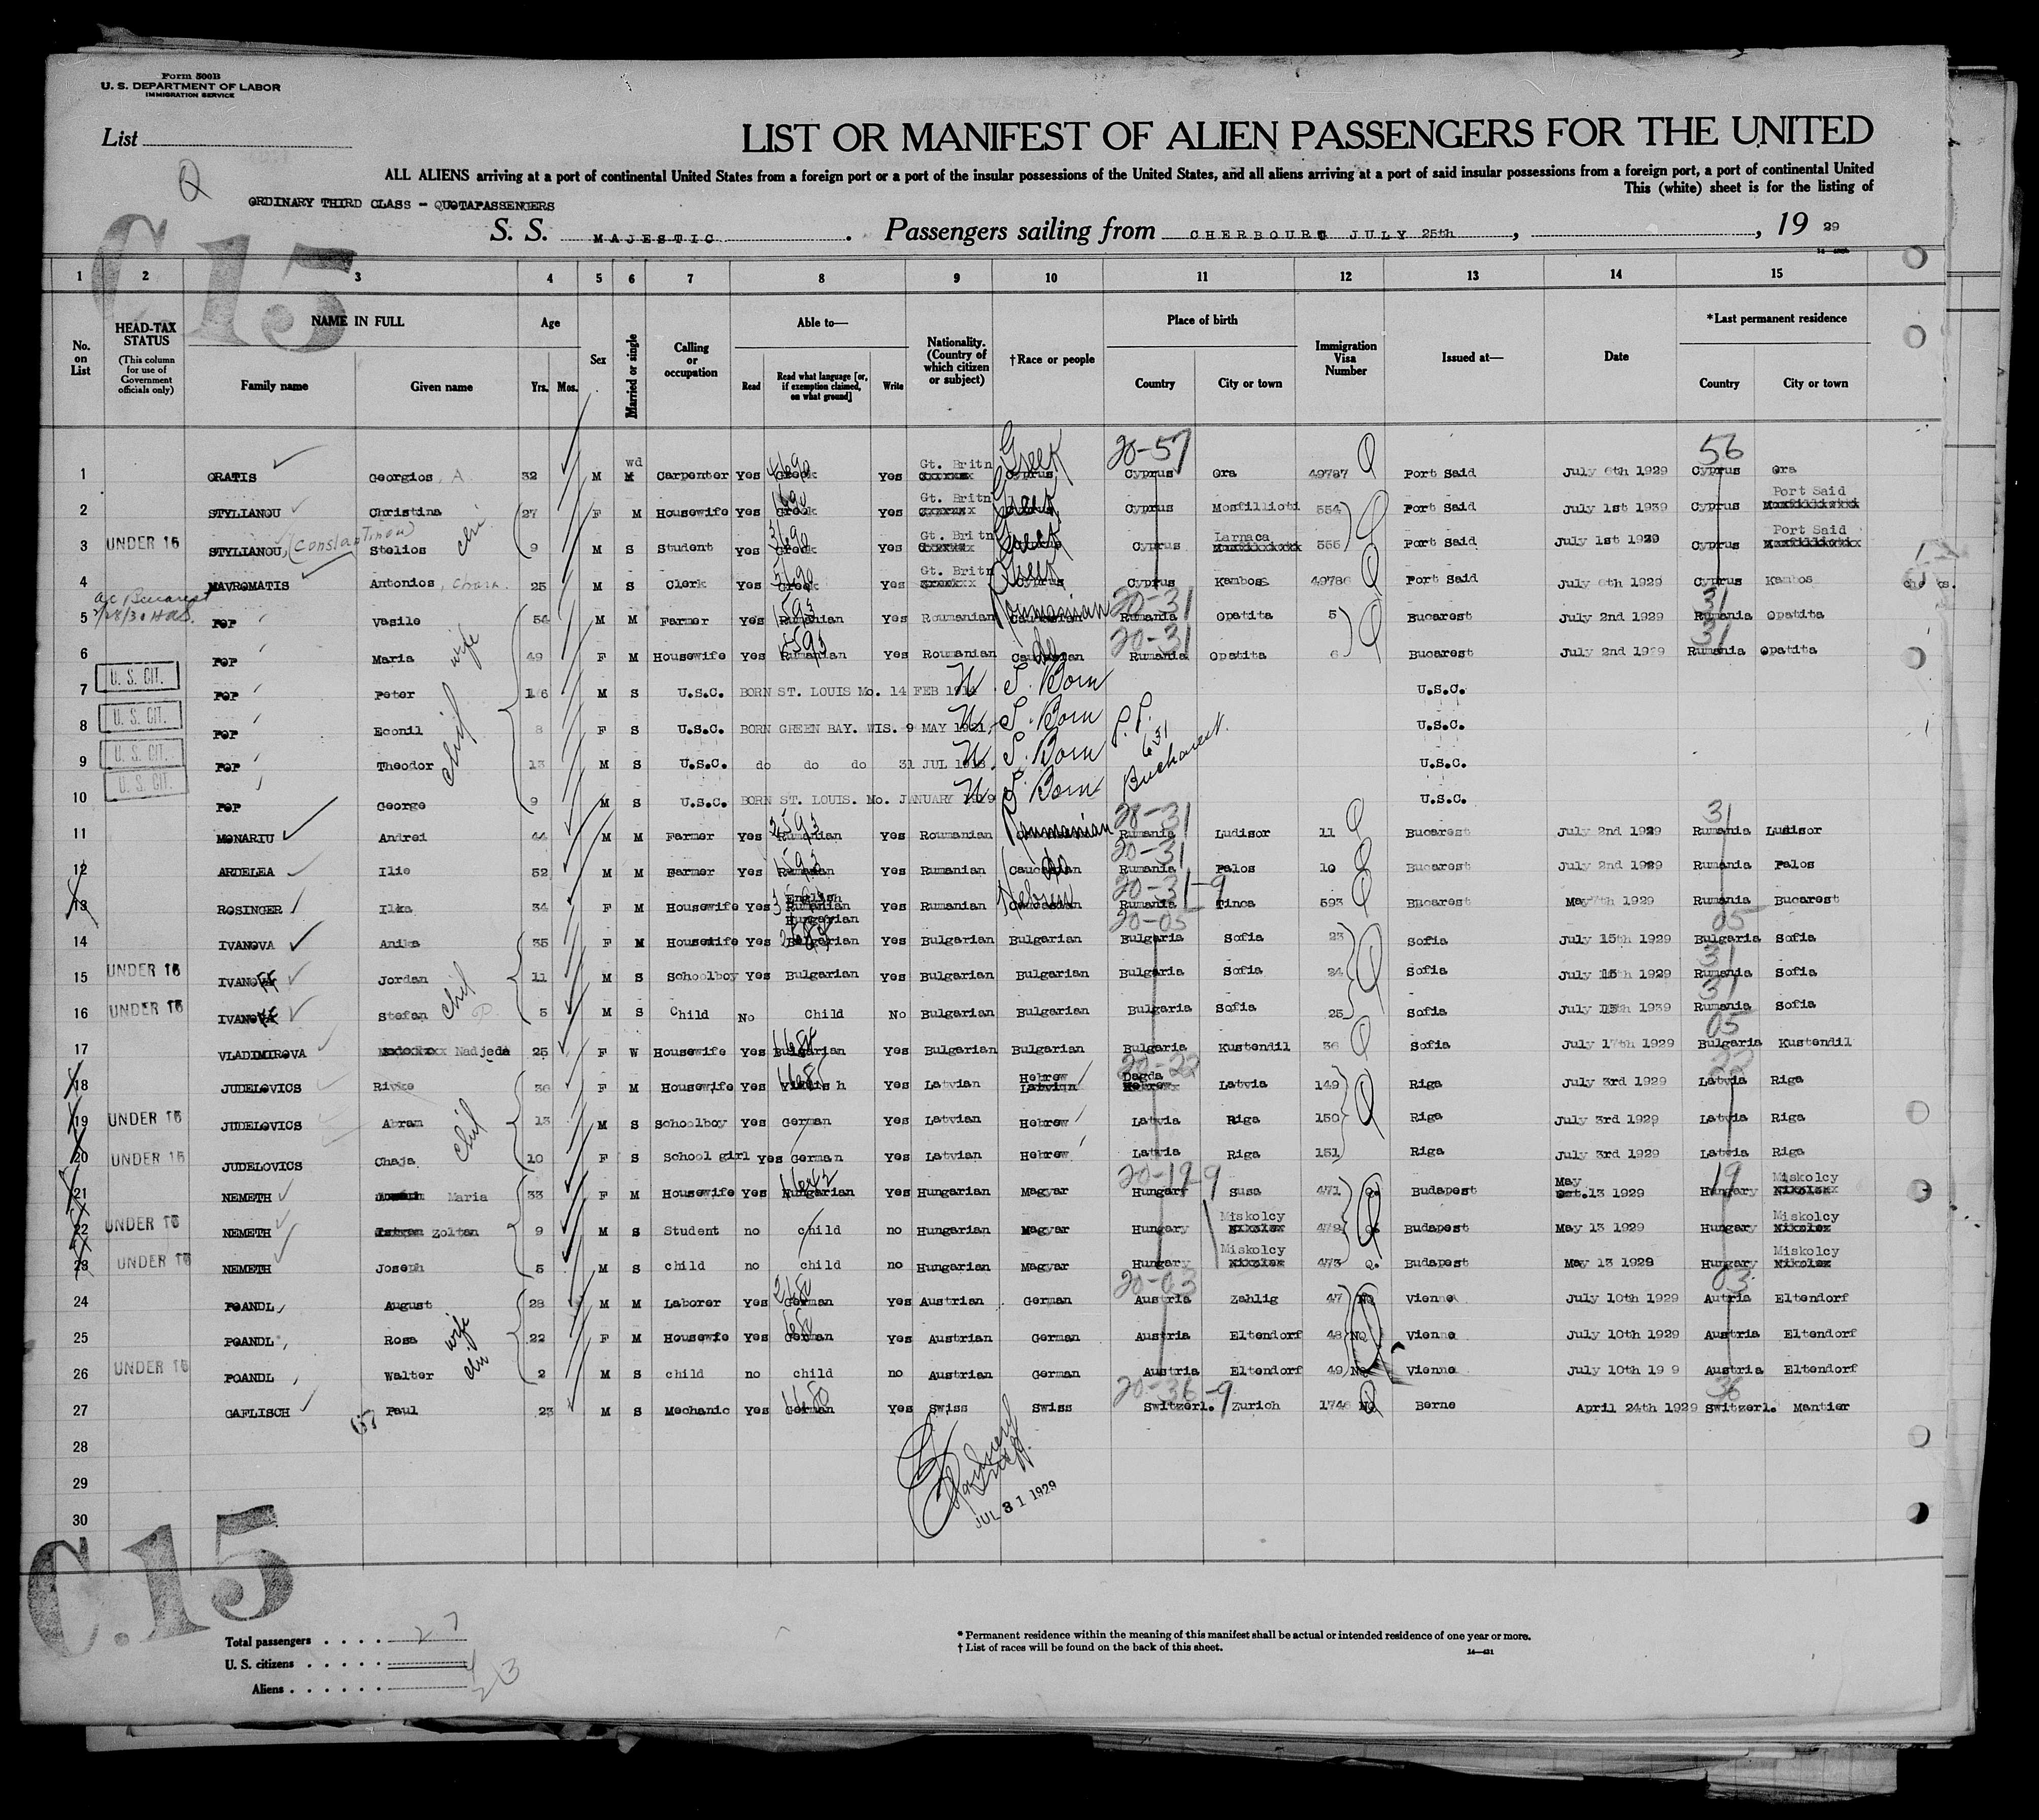 Form 500B
U. S. DEPARTMENT OF LABOR
IMMIGRATION SERVICE
List
LIST OR MANIFEST OF ALIEN PASSENGERS FOR THE UNITED
Q
ALL ALIENS arriving at a port of continental United States from a foreign port or a port of the insular possessions of the United States, and all aliens arriving at a port of said insular possessions from a foreign port, a port of continental United
This (white) sheet is for the listing of
ORDINARY THIRD CLASS - QUOTAPASSENGERS
S. S. MAJESTIC . Passengers sailing from CHERBOURG JULY 25th , , 19 29
C.15
1 2 3 4 5 6 7 8 9 10 11 12 13 14 15
No. on List
HEAD-TAX STATUS (This column for use of Government officials only)
NAME IN FULL Family name Given name
Age Yrs. Mos.
Sex
Married or single
Calling or occupation
Able to— Read Read what language [or, if exemption claimed, on what ground] Write
Nationality. (Country of which citizen or subject)
†Race or people
Place of birth Country City or town
Immigration Visa Number
Issued at—
Date
*Last permanent residence Country City or town
20-57 56
1 GRATIS Georgios, A 32 M wd M Carpenter Yes Greek Yes Gt. Britn Cyprus Greek Cyprus Ora 49787 Q Port Said July 6th 1929 Cyprus Ora
2 STYLIANOU Christina 27 F M Housewife Yes Greek Yes Gt. Britn Greek Cyprus Mosfillioti 554 Q Port Said July 1st 1939 Cyprus Port Said
3 UNDER 16 STYLIANOU, (Constantinou) Stelios chi 9 M S Student Yes Greek Yes Gt. Britn Greek Cyprus Larnaca 555 Port Said July 1st 1929 Cyprus Port Said
4 MAVROMATIS Antonios, 25 M S Clerk Yes Greek Yes Gt. Britn Cyprus Greek Cyprus Kambos 49786 Q Port Said July 6th 1929 Cyprus Kambos
5 POP Vasile 54 M M Farmer Yes Rumanian Yes Roumanian Caucasian Roumanian 20-31 Rumania Opatita 5 Q Bucarest July 2nd 1929 31 Rumania Opatita
6 POP Maria wife 49 F M Housewife Yes Rumanian Yes Roumanian Caucasian do 20-31 Rumania Opatita 6 Bucarest July 2nd 1929 31 Rumania Opatita
7 U. S. CIT. POP Peter 16 M S U.S.C. BORN ST. LOUIS Mo. 14 FEB U. S. Born U.S.C.
8 U. S. CIT. POP Econil chil 8 F S U.S.C. BORN GREEN BAY. WIS. 9 MAY 1921, U. S. Born U.S.C.
9 U. S. CIT. POP Theodor 13 M S U.S.C. do do do 31 JUL U. S. Born U.S.C.
P.P. 631 Bucharest
10 U. S. CIT. POP George 9 M S U.S.C. BORN ST. LOUIS. Mo. JANUARY U. S. Born U.S.C.
11 MONARIU Andrei 44 M M Farmer Yes Rumanian Yes Roumanian Roumanian 20-31 Rumania Ludisor 11 Q Bucarest July 2nd 1929 31 Rumania Ludisor
12 ARDELEA Ilie 52 M M Farmer Yes Rumanian Yes Rumanian Caucasian do 20-31 Rumania Palos 10 Q Bucarest July 2nd 1929 Rumania Palos
13 ROSINGER Ilka 34 F M Housewife Yes English Rumanian Hungarian Yes Rumanian Caucasian Hebrew 20-31-9 Rumania Tinca 593 Q Bucarest May 7th 1929 Rumania Bucarest
14 IVANOVA Anika 35 F M Housewife Yes Bulgarian Yes Bulgarian Bulgarian 20-05 Bulgaria Sofia 23 Sofia July 15th 1929 05 Bulgaria Sofia
15 UNDER 16 IVANOFF Jordan 11 M S Schoolboy Yes Bulgarian Yes Bulgarian Bulgarian Bulgaria Sofia 24 Q Sofia July 15th 1929 31 Rumania Sofia
16 UNDER 16 IVANOFF Stefan chil 5 M S Child No Child No Bulgarian Bulgarian Bulgaria Sofia 25 Sofia July 15th 1939 31 Rumania Sofia
17 VLADIMIROVA Nadjeda 25 F W Housewife Yes Bulgarian Yes Bulgarian Bulgarian Bulgaria Kustendil 36 Q Sofia July 17th 1929 05 Bulgaria Kustendil
18 JUDELOVICS Rivke 36 F M Housewife Yes Yiddish Yes Latvian Hebrew Latvian 20-22 Dagda Hebrew Latvia 149 Riga July 3rd 1929 22 Latvia Riga
19 UNDER 16 JUDELOVICS Abram chil 13 M S Schoolboy Yes German Yes Latvian Hebrew Latvia Riga 150 Q Riga July 3rd 1929 Latvia Riga
20 UNDER 16 JUDELOVICS Chaja 10 F S School girl Yes German Yes Latvian Hebrew Latvia Riga 151 Riga July 3rd 1929 Latvia Riga
21 NEMETH Maria 33 F M Housewife Yes Hungarian Yes Hungarian Magyar 20-19-9 Hungary Susa 471 Q. Budapest May Oct. 13 1929 19 Hungary Miskolcy
22 UNDER 16 NEMETH Istvan Zoltan 9 M S Student no child no Hungarian Magyar Hungary Miskolcy 472 Q. Budapest May 13 1929 Hungary Miskolcy
23 UNDER 16 NEMETH Joseph 5 M S child no child no Hungarian Magyar Hungary Miskolcy 473 Q. Budapest May 13 1929 Hungary Miskolcy
24 POANDL August 28 M M Laborer Yes German Yes Austrian German 20-03 Austria Zahlig 47 NQ Vienne July 10th 1929 03 Autria Eltendorf
25 POANDL Rosa wife 22 F M Housewife Yes German Yes Austrian German Austria Eltendorf 48 NQ Vienne July 10th 1929 Austria Eltendorf
26 UNDER 16 POANDL Walter chi 2 M S child no child no Austrian German Austria Eltendorf 49 NQ Vienne July 10th 19 9 Austria Eltendorf
27 CAFLISCH Paul 23 M S Mechanic Yes German Yes Swiss Swiss 20-36-9 Switzerl. Zurich 1746 NQ Berne April 24th 1929 36 Switzerl. Mantier
67
28
29
30
JUL 31 1929
C.15
Total passengers . . . . 27
U. S. citizens . . . . . 4
Aliens . . . . . . 23
* Permanent residence within the meaning of this manifest shall be actual or intended residence of one year or more.
† List of races will be found on the back of this sheet.